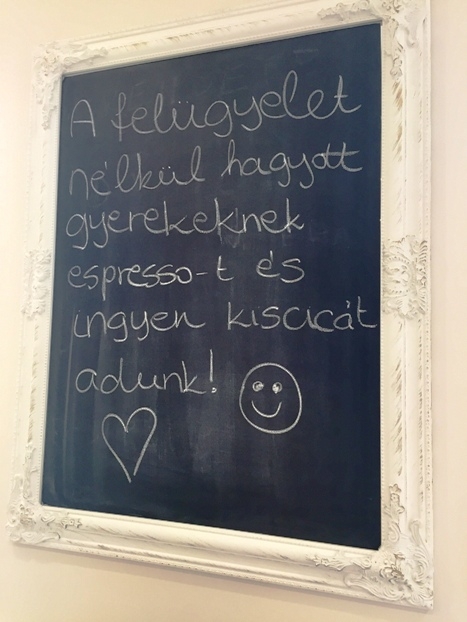 A felügyelet
nélkül hagyott
gyerekeknek
espresso-t és
ingyen kiscicát
adunk!